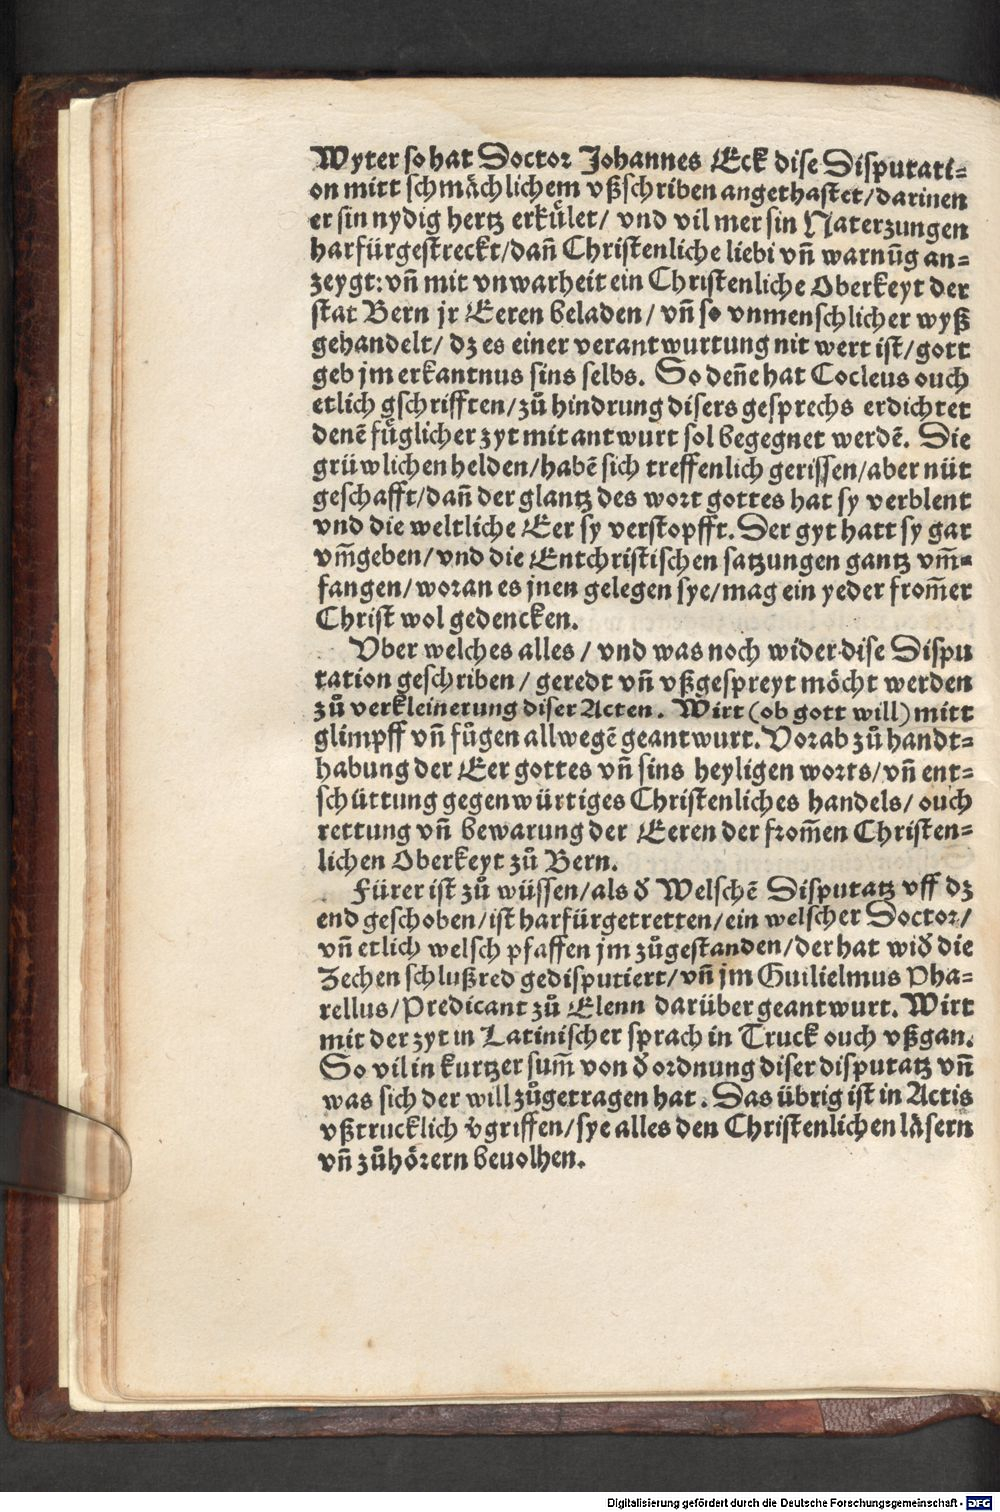 Wyter so hat Doctor Johannes Eck dise Disputati=
on mitt schmächlichem vßschriben angethastet/darinen
er sin nydig hertz erkület/ vnd vil mer sin Naterzungen
harfürgestreckt/dañ Christenliche liebi vñ warnũg an=
zeygt: vñ mit vnwarheit ein Christenliche Oberkeyt der
stat Bern jr Eeren beladen/ vñ so vnmenschlicher wyß
gehandelt/ dz es einer verantwurtung nit wert ist/gott
geb jm erkantnus sins selbs. So deñe hat Cocleus ouch
etlich gschrifften/zů hindrung disers gesprechs erdichtet
denẽ füglicher zyt mit antwurt sol begegnet werdẽ. Die
grüwlichen helden/habẽ sich treffenlich gerissen/aber nüt
geschafft/dañ der glantz des wort gottes hat sy verblent
vnd die weltliche Eer sy verstopfft. Der gyt hatt sy gar
vm̃geben/vnd die Entchristischen satzungen gantz vm̃=
fangen/woran es jnen gelegen sye/mag ein yeder from̃er
Christ wol gedencken.
Vber welches alles / vnd was noch wider dise Dispu
tation geschriben/ geredt vñ vßgespreyt möcht werden
zů verkleinerung diser Acten. Wirt (ob gott will) mitt
glimpff vñ fůgen allwegẽ geantwurt. Vorab zů handt=
habung der Eer gottes vñ sins heyligen worts/vñ ent=
schüttung gegenwürtiges Christenliches handels/ ouch
rettung vñ bewarung der Eeren der from̃en Christen=
lichen Oberkeyt zů Bern.
Fürer ist zů wüssen/als ð Welschẽ Disputatz vff dz
end geschoben/ist harfürgetretten/ein welscher Doctor/
vñ etlich welsch pfaffen jm zůgestanden/der hat wið die
Zechen schlußred gedisputiert/vñ jm Guilielmus Pha=
rellus/Predicant zů Elenn darüber geantwurt. Wirt
mit der zyt in Latinischer sprach in Truck ouch vßgan.
So vil in kurtzer sum̃ von ð ordnung diser disputatz vñ
was sich der will zůgetragen hat. Das übrig ist in Actis
vßtrucklich v̓griffen/sye alles den Christenlichen läsern
vñ zůhörern beuolhen.
Digitalisierung gefördert durch die Deutsche Forschungsgemeinschaft - DFG